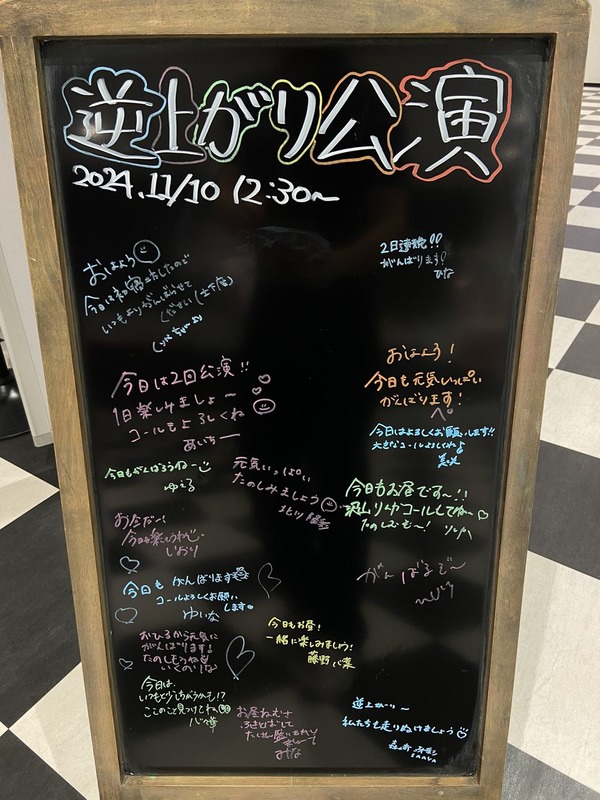 逆上がり公演
2024.11/10 12:30~
おはよう
今日は初
いつもよりがんばらせて
ください(土下座)
2日連続!!
がんばります!
ひな
おはよう!
今日も元気いっぱい
がんばります!
今日は2回公演!!
1日楽しみましょ〜
コールもよろしくね
あいちー
今日はよろしくお願いします!!
大きなコールよろしくね
美咲
今日もがんばろうねー
ゆうる
元気いっぱい
たのしみましょう
北川
今日もお昼です〜!!
沢山りゆコールしてね〜
たのしむ〜!
お昼だー!
今日も楽しもうね
しおり
がんばるぞ〜
今日も がんばります
コールよろしくお願い
します。
ゆいな
今日もお昼!
一緒に楽しみましょう!
藤野 心葉
おひるから元気に
がんばります!
たのしもうね
いくのりな
今日は、
いつもと少しちがうかも!?
ここのこと見つけてね
お昼ねむけ
ふきとばして
たくさん盛り上がり
ましょーう
みな
逆上がり〜
私たちも走りぬけましょう